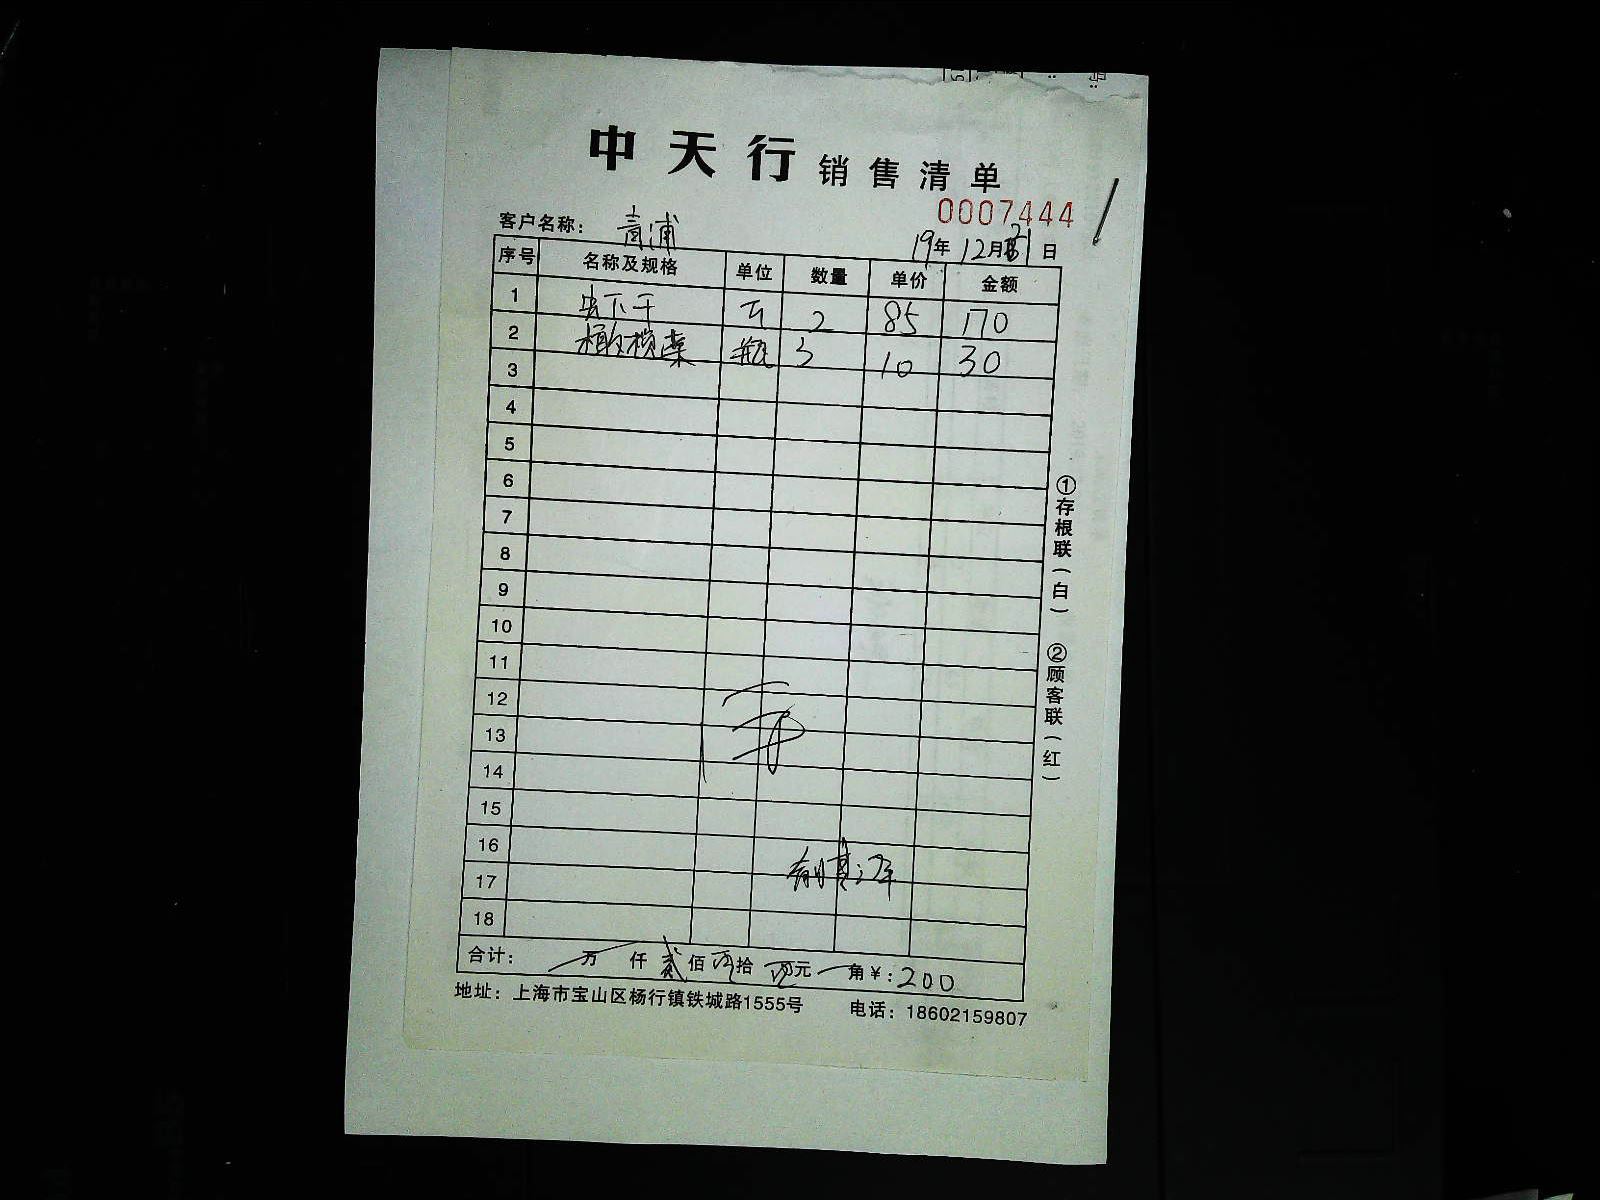 中天行销售清单
0007444
客户名称: 青浦
19年12月21日
序号 名称及规格 单位 数量 单价 金额
1 2 85 170
2 橄榄菜 瓶 3 10 30
3
4
5
6
7
8
9
10
11
12
13
14
15
16
17
18
合计: 万 仟 贰 佰 拾 元 角 ¥: 200
地址: 上海市宝山区杨行镇铁城路1555号 电话: 18602159807
①存根联(白) ②顾客联(红)